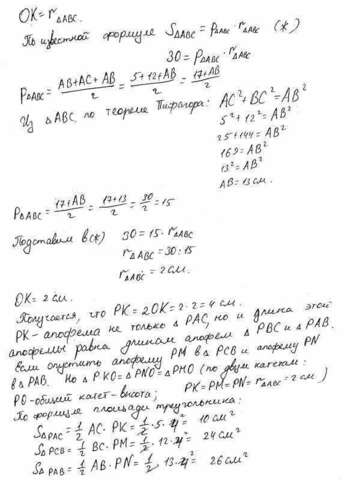 OK = r△ABC.
По известной формуле S△ABC = P△ABC · r△ABC (*)
30 = P△ABC · r△ABC
P△ABC = (AB+AC+AB)/2 = (5+12+AB)/2 = (17+AB)/2
Из △ABC по теореме Пифагора: AC² + BC² = AB²
5² + 12² = AB²
25 + 144 = AB²
169 = AB²
13² = AB²
AB = 13 см.
P△ABC = (17+AB)/2 = (17+13)/2 = 30/2 = 15
Подставим в (*) 30 = 15 · r△ABC
r△ABC = 30 : 15
r△ABC = 2 см.
OK = 2 см.
Получается, что PK = 2OK = 2 · 2 = 4 см.
PK - апофема не только △PAC, но и длина этой
апофемы равна длинам апофем △PBC и △PAB.
опустить апофему PM в △PCB и апофему PN
в △PAB. Но △PKO = △PNO = △PMO (по двум катетам:
PO - общий катет - высота; PK = PM = PN = r△ABC = 2 см)
По формуле площади треугольника:
S△PAC = 1/2 AC · PK = 1/2 · 5 · 4² = 10 см²
S△PCB = 1/2 BC · PM = 1/2 · 12 · 4² = 24 см²
S△PAB = 1/2 AB · PN = 1/2 · 13 · 4² = 26 см²